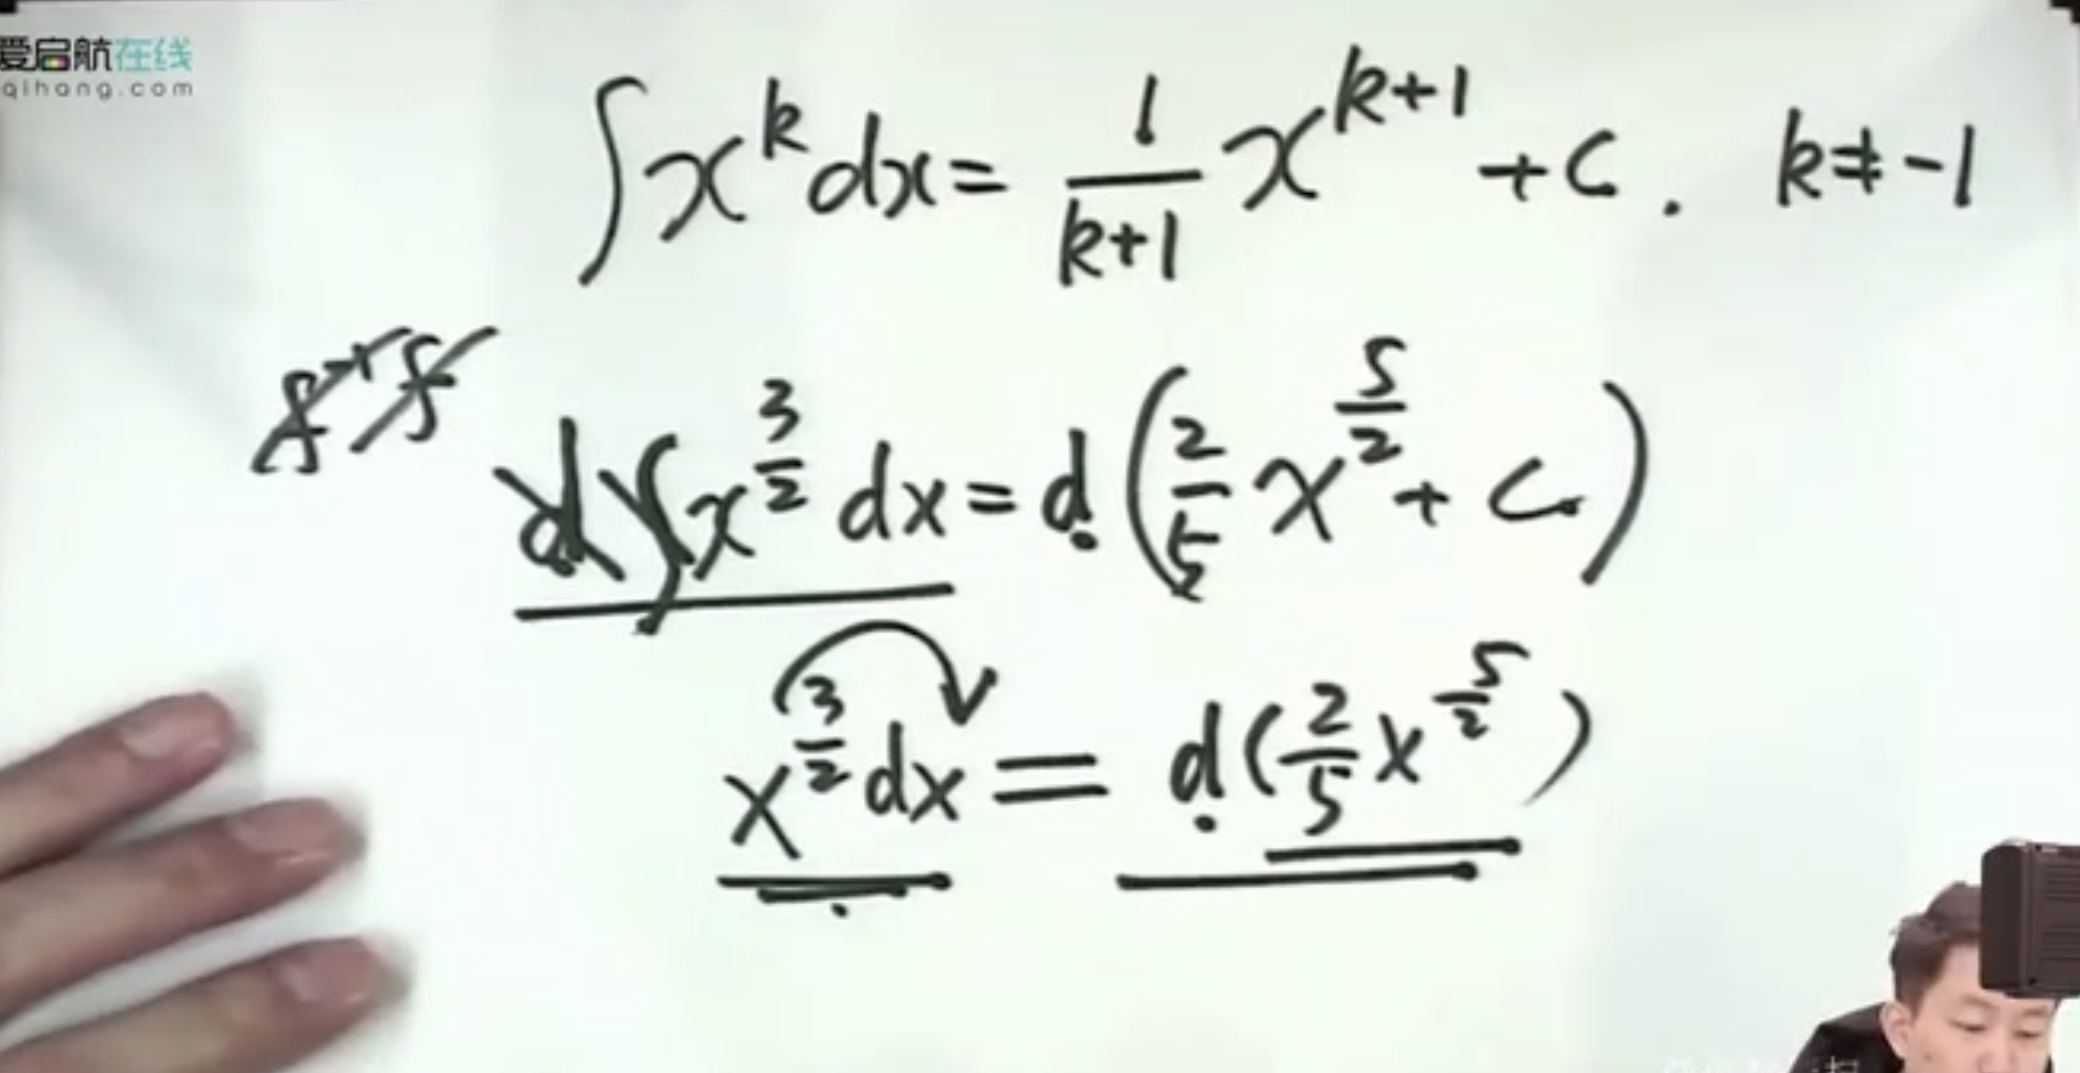 爱启航在线
qihang.com
∫x^k dx = 1/(k+1) x^(k+1) + C. k ≠ -1
d∫x^(3/2) dx = d(2/5 x^(5/2) + C)
x^(3/2) dx = d(2/5 x^(5/2))